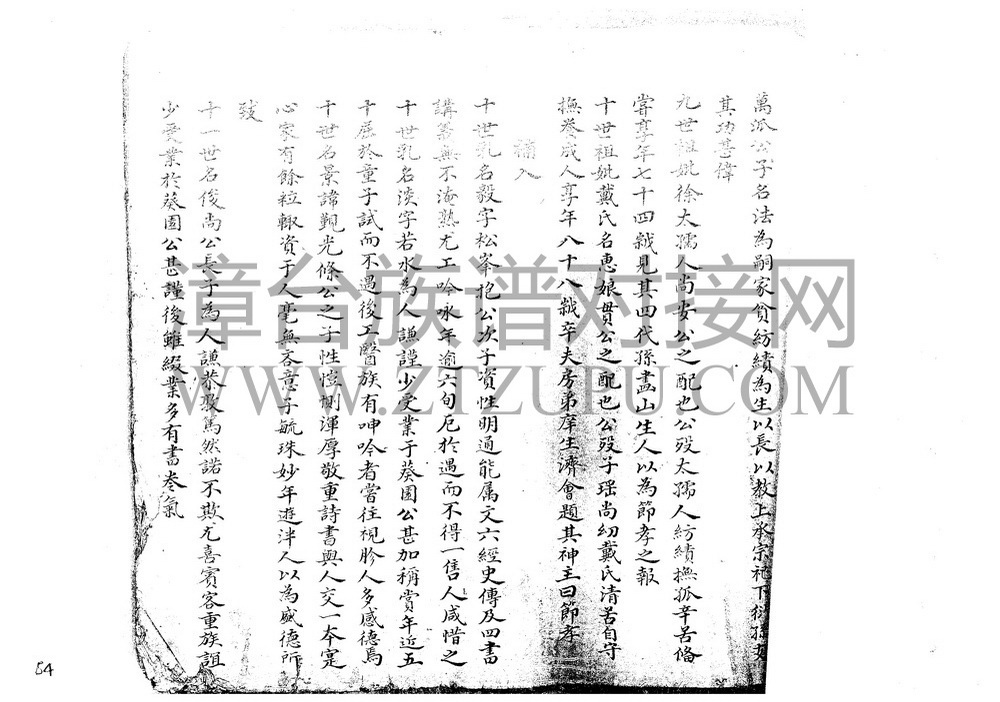 萬派公子名法為嗣家貧紡績為生以長以教上承宗祀下衍孫支
其功甚偉
九世祖妣徐太孺人尚安公之配也公歿太孺人紡績撫孤辛苦俻
嘗享年七十四歲見其四代孫盡山生人以為節孝之報
十世祖妣戴氏名惠娘貫公之配也公歿子瑶尚幼戴氏清苦自守
撫養成人享年八十八歲卒夫房弟庠生濟會題其神主曰節孝
補入
十世乳名毅字松峯抱公次子資性明通能属文六經史傳及四書
講義無不淹熟尤工吟咏年逾六旬厄於遇而不得一售人咸惜之
十世乳名淡字若水為人謙謹少受業于葵園公甚加稱賞年近五
十屈於童子試而不遇後工醫族有呻吟者嘗往視胗人多感德焉
十世名景諱覲光條公之子性愷惻渾厚敬重詩書與人交一本寔
心家有餘粒輙資于人毫無吝意子毓珠妙年遊泮人以為盛德所
致
十一世名俊尚公長子為人謙恭敦篤然諾不欺尤喜賓客重族誼
少受業於葵園公甚謹後雖綴業多有書卷氣
54
漳台族谱对接网
WWW.ZTZUPU.COM